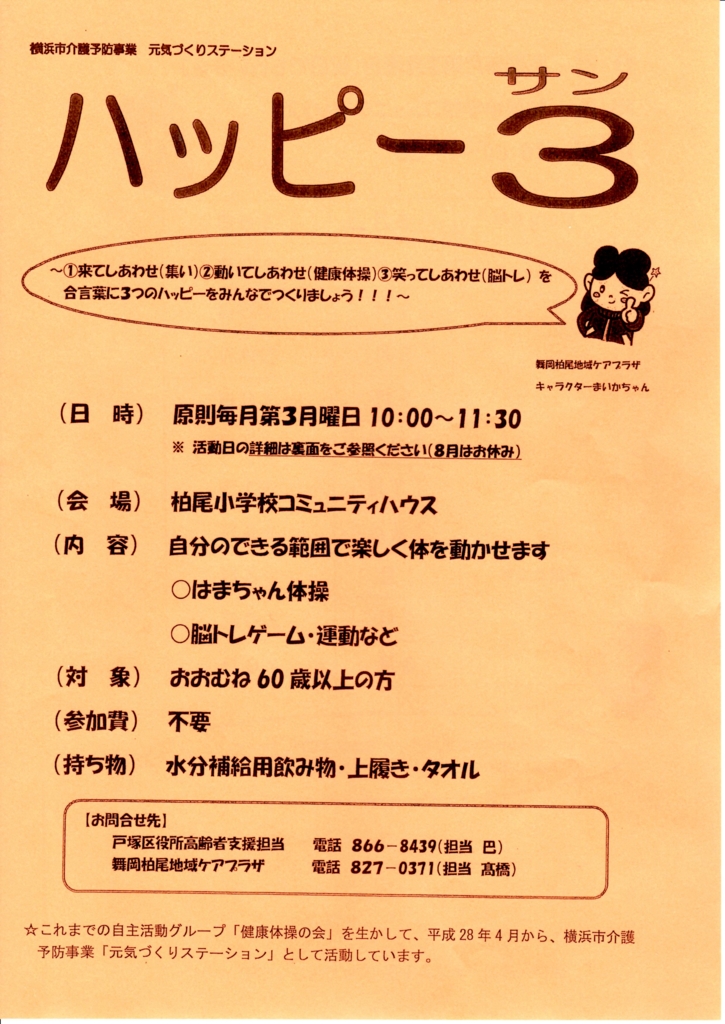 横浜市介護予防事業　元気づくりステーション
サン
ハッピー3
～①来てしあわせ（集い）②動いてしあわせ（健康体操）③笑ってしあわせ（脳トレ）を
合言葉に3つのハッピーをみんなでつくりましょう！！！～
舞岡柏尾地域ケアプラザ
キャラクターまいかちゃん
（日　時）　原則毎月第3月曜日 10：00～11：30
※ 活動日の詳細は裏面をご参照ください（8月はお休み）
（会　場）　柏尾小学校コミュニティハウス
（内　容）　自分のできる範囲で楽しく体を動かせます
○はまちゃん体操
○脳トレゲーム・運動など
（対　象）　おおむね 60 歳以上の方
（参加費）　不要
（持ち物）　水分補給用飲み物・上履き・タオル
【お問合せ先】
戸塚区役所高齢者支援担当　電話 866－8439（担当 巴）
舞岡柏尾地域ケアプラザ　電話 827－0371（担当 髙橋）
☆これまでの自主活動グループ「健康体操の会」を生かして、平成 28 年 4 月から、横浜市介護
予防事業「元気づくりステーション」として活動しています。